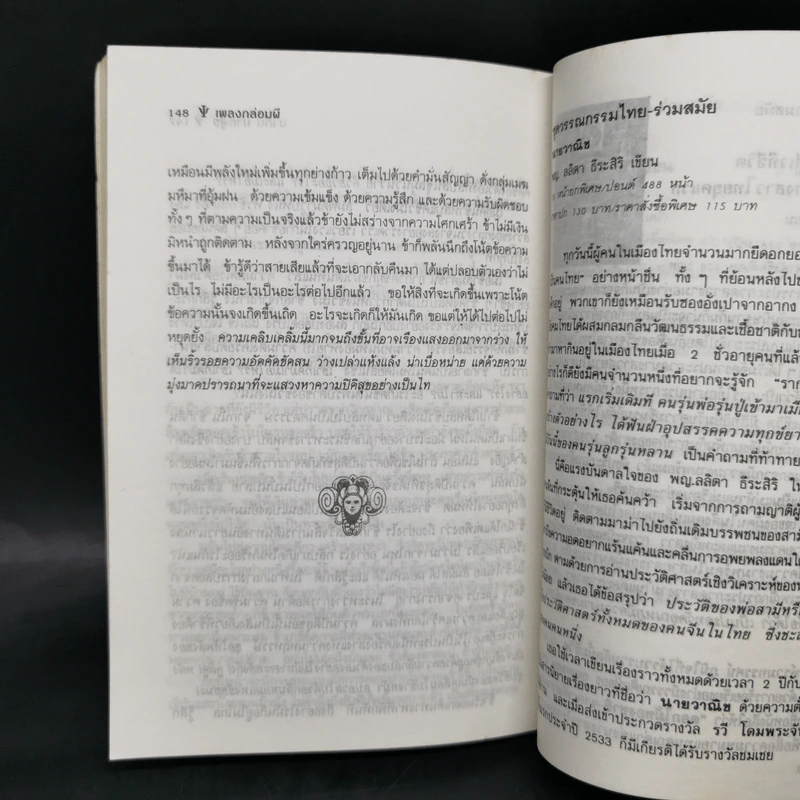 148 Ψ เพลงกล่อมผี
เหมือนมีพลังใหม่เพิ่มขึ้นทุกย่างก้าว เต็มไปด้วยคำมั่นสัญญา ดั่งกลุ่มเมฆ
มหึมาที่อุ้มฝน ด้วยความเข้มแข็ง ด้วยความรู้สึก และด้วยความรับผิดชอบ
ทั้งๆ ที่ตามความเป็นจริงแล้วข้ายังไม่สร่างจากความโศกเศร้า ข้าไม่มีเงิน
มิหนำถูกติดตาม หลังจากใคร่ครวญอยู่นาน ข้าก็พลันนึกถึงโน้ตข้อความ
ขึ้นมาได้ ข้ารู้ดีว่าสายเสียแล้วที่จะเอากลับคืนมา ได้แต่ปลอบตัวเองว่าไม่
เป็นไร ไม่มีอะไรเป็นอะไรต่อไปอีกแล้ว ขอให้สิ่งที่จะเกิดขึ้นเพราะโน้ต
ข้อความนั้นจงเกิดขึ้นเถิด อะไรจะเกิดก็ให้มันเกิด ขอแต่ให้ได้ไปต่อไปไม่
หยุดยั้ง ความเคลิบเคลิ้มนี้มากจนถึงขั้นที่อาจเรืองแสงออกมาจากร่าง ให้
เห็นริ้วรอยความอัตคัดขัดสน ว่างเปล่าแห้งแล้ง น่าเบื่อหน่าย แต่ด้วยความ
มุ่งมาดปรารถนาที่จะแสวงหาความปิติสุขอย่างเป็นไท
วรรณกรรมไทย-ร่วมสมัย
นายวาณิช
พญ. ลลิตา ธีระสิริ เขียน
หน้ายกพิเศษ/ปอนด์ 488 หน้า
130 บาท/ราคาสั่งซื้อพิเศษ 115 บาท
ทุกวันนี้ผู้คนในเมืองไทยจำนวนมากยืดอกยอ
คนไทย" อย่างหน้าชื่น ทั้งๆ ที่ย้อนหลังไป
อยู่ พวกเขาก็ยังเหมือนรับซองอั่งเปาจากอากง
ไทยได้ผสมกลมกลืนวัฒนธรรมและเชื้อชาติกับ
มาหากินอยู่ในเมืองไทยเมื่อ 2 ชั่วอายุคนที่แล้
ไรก็ดียังมีคนจำนวนหนึ่งที่อยากจะรู้จัก "ราก
ความที่ว่า แรกเริ่มเดิมที คนรุ่นพ่อรุ่นปู่เข้ามาเมือ
ตัวอย่างไร ได้ฟันฝ่าอุปสรรคความทุกข์ยา
นี้ของคนรุ่นลูกรุ่นหลาน เป็นคำถามที่ท้าทาย
นี่คือแรงบันดาลใจของ พญ.ลลิตา ธีระสิริ ใน
ที่กระตุ้นให้เธอค้นคว้า เริ่มจากการถามญาติผู้
ชีวิตอยู่ ติดตามมาม่าไปยังถิ่นเดิมบรรพชนของสามี
ความอดอยากแร้นแค้นและคลื่นการอพยพลงแดนใต้
ตามด้วยการอ่านประวัติศาสตร์เชิงวิเคราะห์ของ
แล้วเธอได้ข้อสรุปว่า ประวัติของพ่อสามีหรื
ประวัติศาสตร์ทั้งหมดของคนจีนในไทย ซึ่งชะ
คนหนึ่ง
เธอใช้เวลาเขียนเรื่องราวทั้งหมดด้วยเวลา 2 ปีกับ
นิยายเรื่องยาวที่ชื่อว่า นายวาณิช ด้วยความตั้
และเมื่อส่งเข้าประกวดรางวัล รวี โดมพระจัน
ประจำปี 2533 ก็มีเกียรติได้รับรางวัลชมเชย